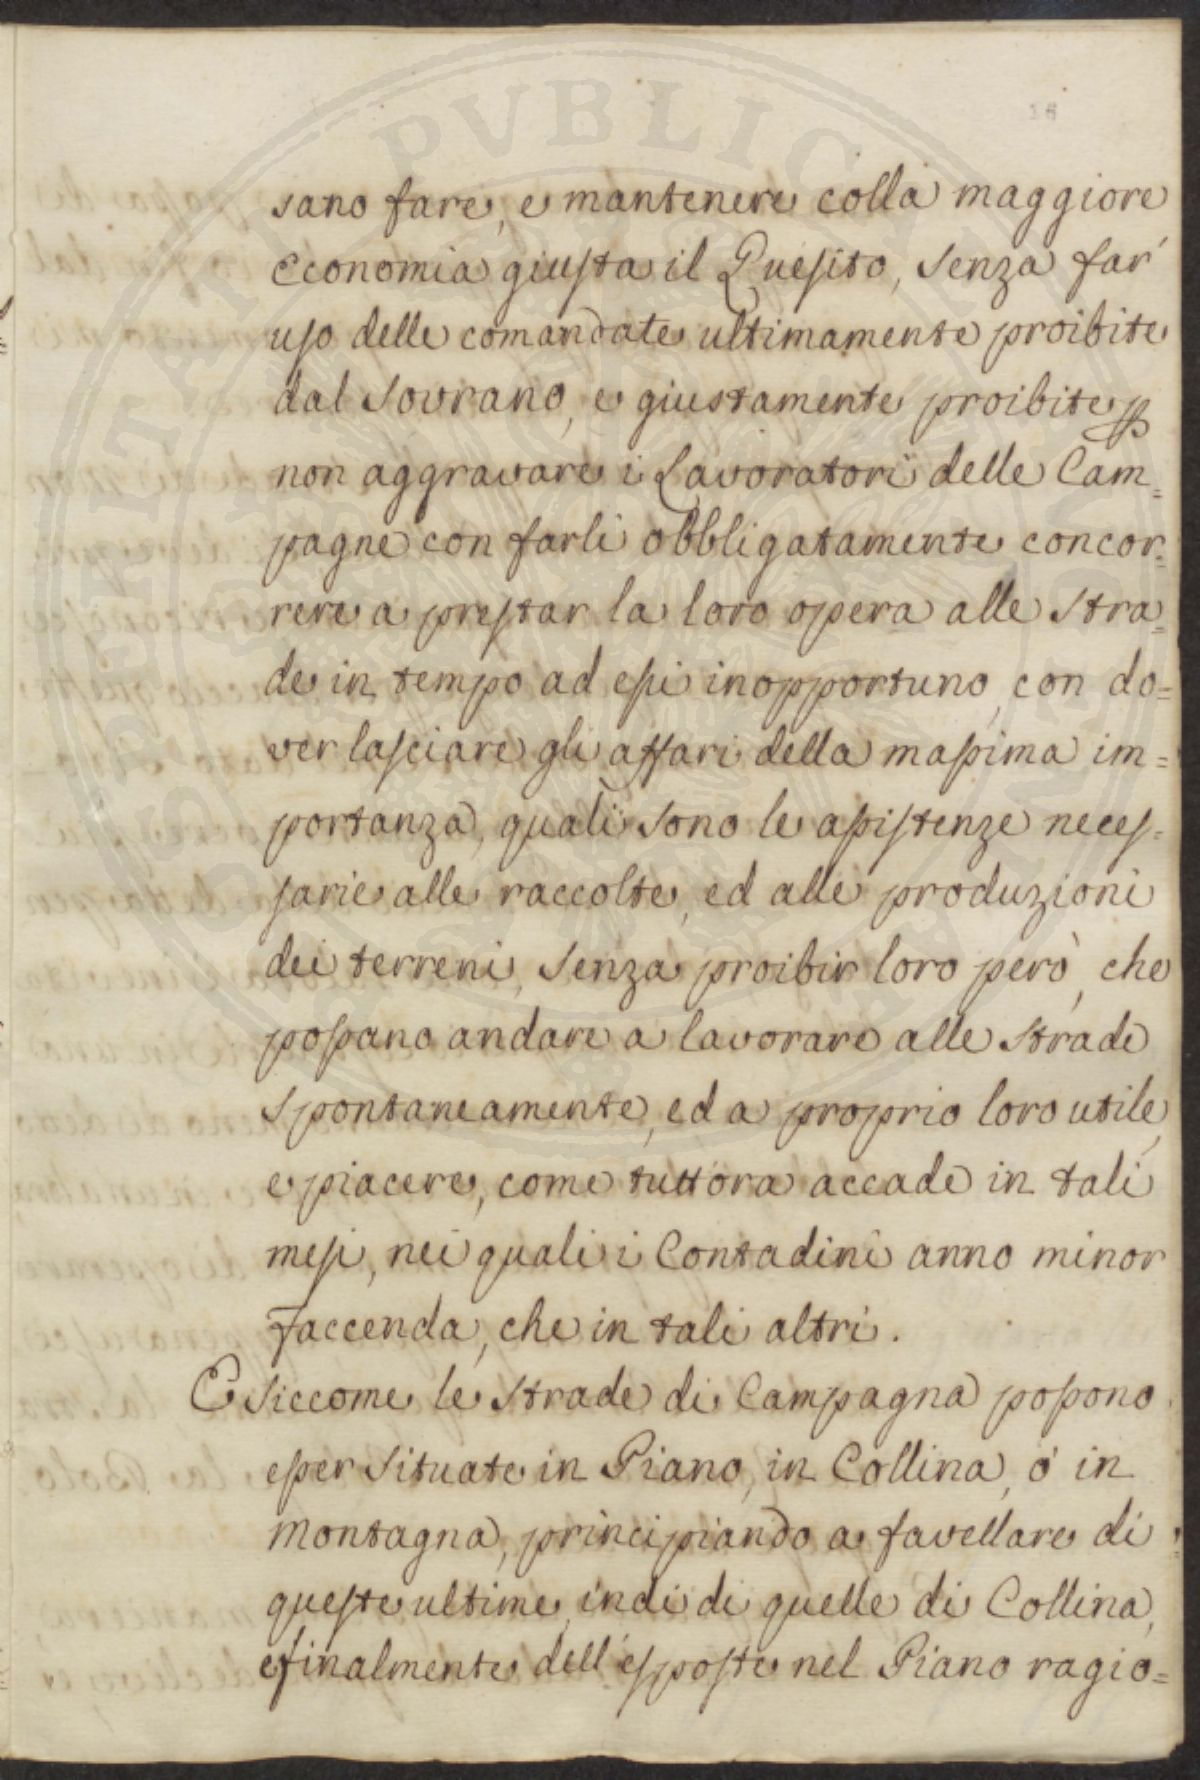 16
sano fare, e mantenere colla maggiore
economia giusta il Quesito, senza far
uso delle comandate ultimamente proibite
dal Sovrano, e giustamente proibite p
non aggravare i Lavoratori delle Cam=
pagne con farli obbligatamente concor=
rere a prestar la loro opera alle Stra=
de in tempo ad essi inopportuno, con do=
ver lasciare gli affari della massima im=
portanza, quali sono le assistenze neces=
sarie alle raccolte, ed alle produzioni
dei terreni, senza proibir loro però, che
possano andare a lavorare alle Strade
spontaneamente, ed a proprio loro utile,
e piacere, come tuttora accade in tali
mesi, nei quali i Contadini anno minor
faccenda, che in tali altri.
E siccome le Strade di Campagna possono
esser situate in Piano, in Collina, ó in
Montagna, principiando a favellare di
queste ultime, indi di quelle di Collina,
e finalmente dell'esposte nel Piano ragio=